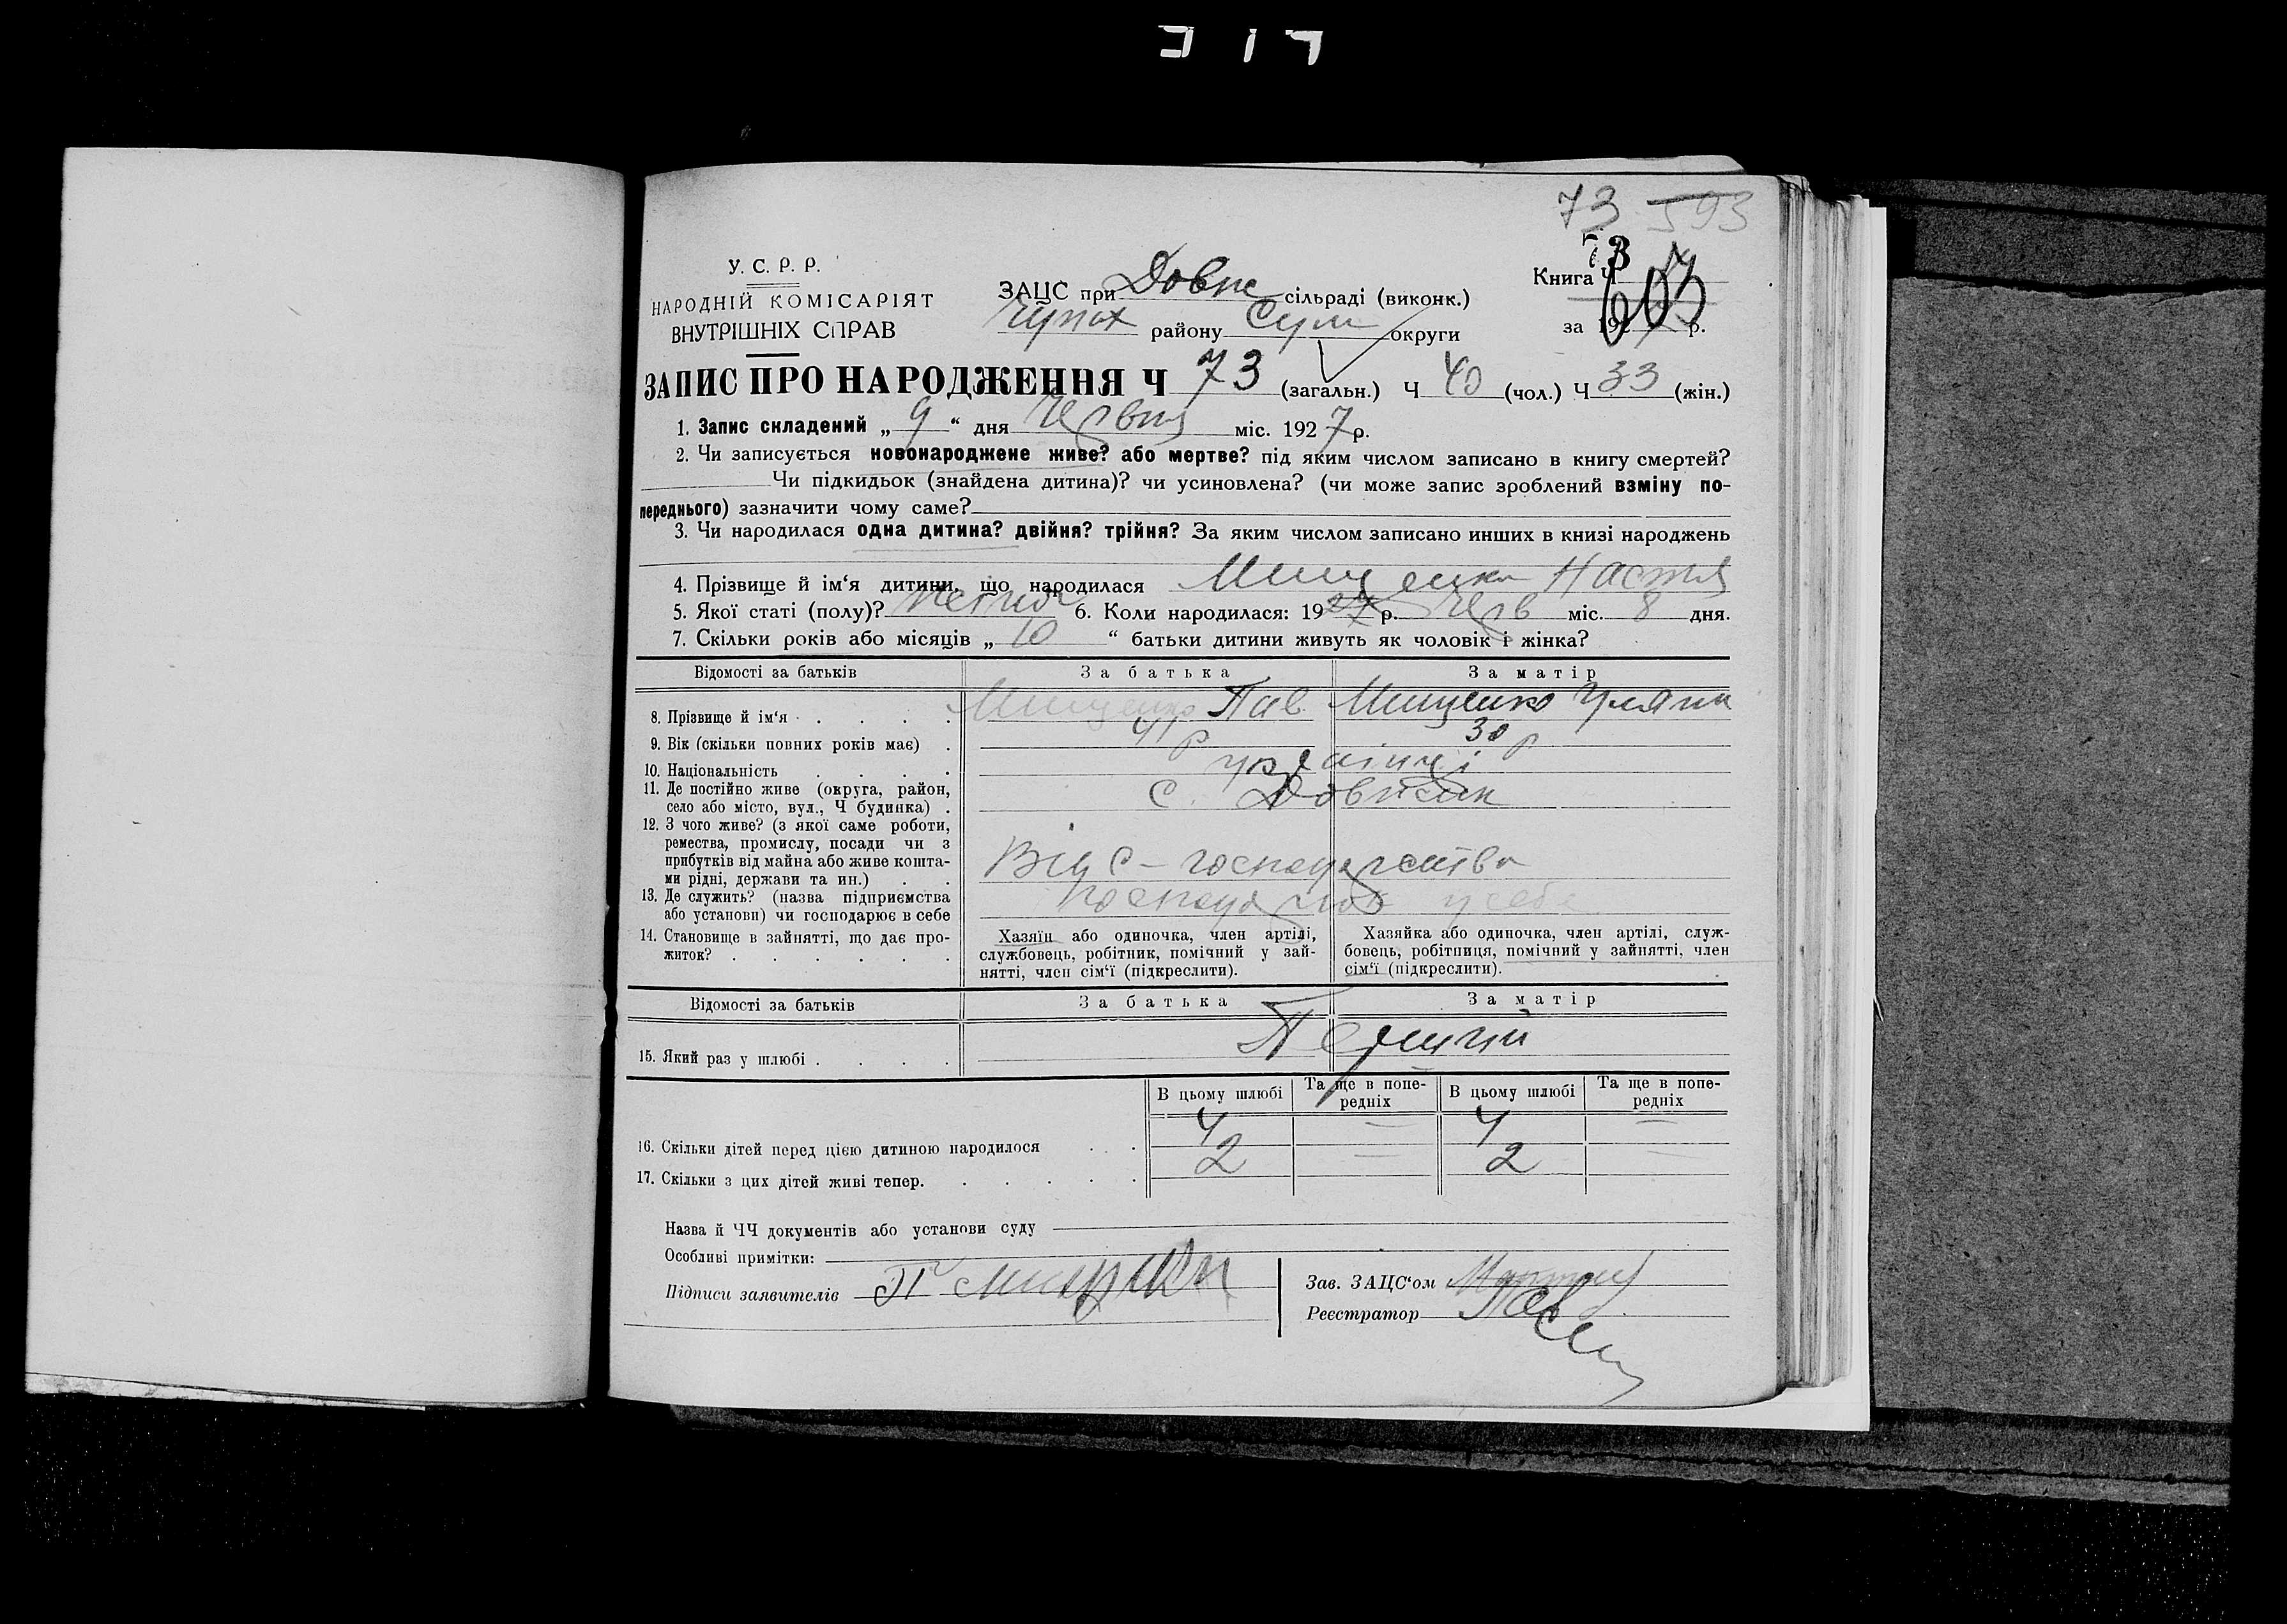 73 593
73
У. С. Р. Р.
НАРОДНІЙ КОМІСАРІЯТ
ВНУТРІШНІХ СПРАВ
ЗАЦС при Довж сільраді (виконк.)
Чупах району Сум округи
Книга Ч 603
за 192 р.
ЗАПИС ПРО НАРОДЖЕННЯ Ч 73 (загальн.) Ч 40 (чол.) Ч 33 (жін.)
1. Запис складений „ 9 “ дня Червня міс. 1927 р.
2. Чи записується новонароджене живе? або мертве? під яким числом записано в книгу смертей?
Чи підкидьок (знайдена дитина)? чи усиновлена? (чи може запис зроблений взміну по-
переднього) зазначити чому саме?
3. Чи народилася одна дитина? двійня? трійня? За яким числом записано инших в книзі народжень
4. Прізвище й ім‘я дитини, що народилася Мищенко Настя
5. Якої статі (полу)? 6. Коли народилася: 1927 р. Черв міс. 8 дня.
7. Скільки років або місяців „ 10 “ батьки дитини живуть як чоловік і жінка?
Відомості за батьків За батька За матір
8. Прізвище й ім‘я Мищенко Пав Мищенко Уляна
9. Вік (скільки повних років має) 41 р 30 р
10. Національність українці
11. Де постійно живе (округа, район,
село або місто, вул., Ч будинка) С. Довжик
12. З чого живе? (з якої саме роботи,
ремества, промислу, посади чи з
прибутків від майна або живе кошта-
ми рідні, держави та ин.) Від С-господарства
13. Де служить? (назва підприємства
або установи) чи господарює в себе у себе
14. Становище в зайнятті, що дає про-
житок?
Хазяїн або одиночка, член артілі,
службовець, робітник, помічний у зай-
нятті, член сім‘ї (підкреслити).
Хазяйка або одиночка, член артілі, служ-
бовець, робітниця, помічний у зайнятті, член
сім‘ї (підкреслити).
Відомості за батьків За батька За матір
15. Який раз у шлюбі Перший
В цьому шлюбі Та ще в попе-
редніх В цьому шлюбі Та ще в попе-
редніх
16. Скільки дітей перед цією дитиною народилося 4 — 4 —
17. Скільки з цих дітей живі тепер. 2 — 2 —
Назва й ЧЧ документів або установи суду
Особливі примітки:
Підписи заявителів П
Зав. ЗАЦС‘ом
Реєстратор